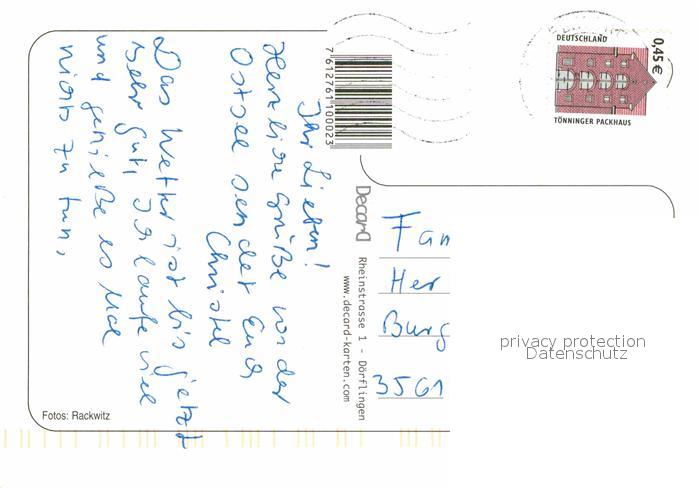 Ihr Lieben!
Herzliche Grüße von der
Ostsee sendet Euch
Christel
Das Wetter ist bis jetzt
sehr gut, ich laufe viel
und genieße es mal
nichts zu tun,
Fotos: Rackwitz
7612761100023
Decard Rheinstrasse 1 - Dörflingen
www.decard-karten.com
DEUTSCHLAND
0,45 €
TÖNNINGER PACKHAUS
Fam
Her
Burg
3561
privacy protection
Datenschutz